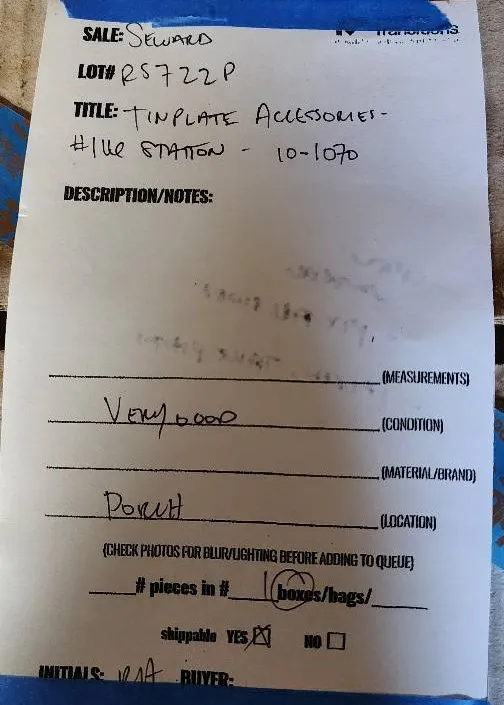 SALE: SEWARD
Transitions
LOT# RS722P
TITLE: TINPLATE ACCESSORIES-
#116 STATION - 10-1070
DESCRIPTION/NOTES:
(MEASUREMENTS)
VERY GOOD (CONDITION)
(MATERIAL/BRAND)
PORCH (LOCATION)
(CHECK PHOTOS FOR BLUR/LIGHTING BEFORE ADDING TO QUEUE)
# pieces in # 1 boxes/bags/
shippable YES NO
INITIALS: BUYER: